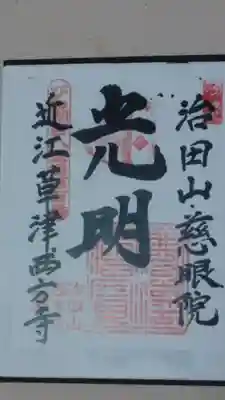 治田山慈眼院
光明
近江草津西方寺